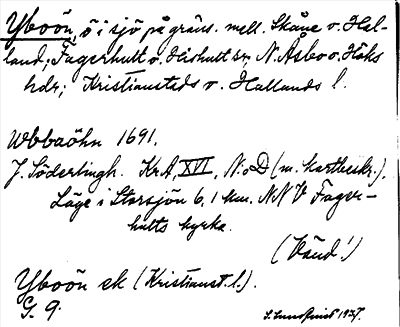 Yboön, ö i sjö på gräns. mell. Skåne o. Hal-
land; Fagerhult o. Hishult sr; N. Åsbo o. Höks
hdr; Kristianstads o. Hallands l.
Wbbaöhn 1691.
J. Söderlingh. KrA, XVI, N:o D (m. kartbeskr.).
Läge i Storsjön 6,1 km. NNV Fager-
hults kyrka.
(Vänd!)
Yboön ek (Kristianst. l.).
G. 9.
S. Lundquist 1927.